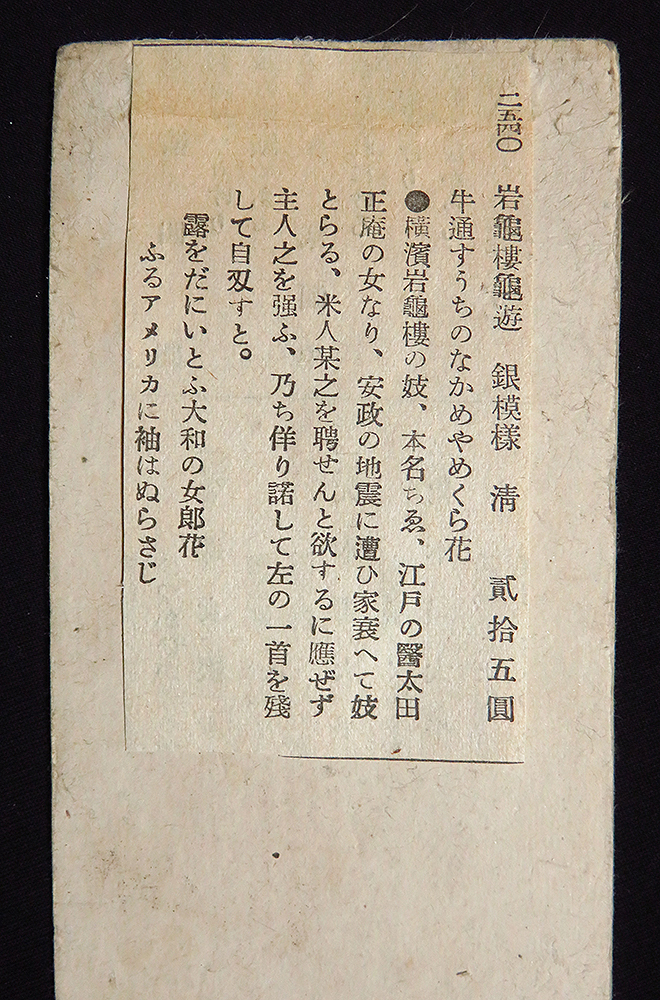 二五四〇 岩龜樓龜遊 銀模樣 淸 貳拾五圓
牛通すうちのなかめやめくら花
●橫濱岩龜樓の妓、本名ちゑ、江戶の醫太田
正庵の女なり、安政の地震に遭ひ家衰へて妓
とらる、米人某之を聘せんと欲するに應ぜず
主人之を强ふ、乃ち佯り諾して左の一首を殘
して自刄すと。
露をだにいとふ大和の女郞花
ふるアメリカに袖はぬらさじ